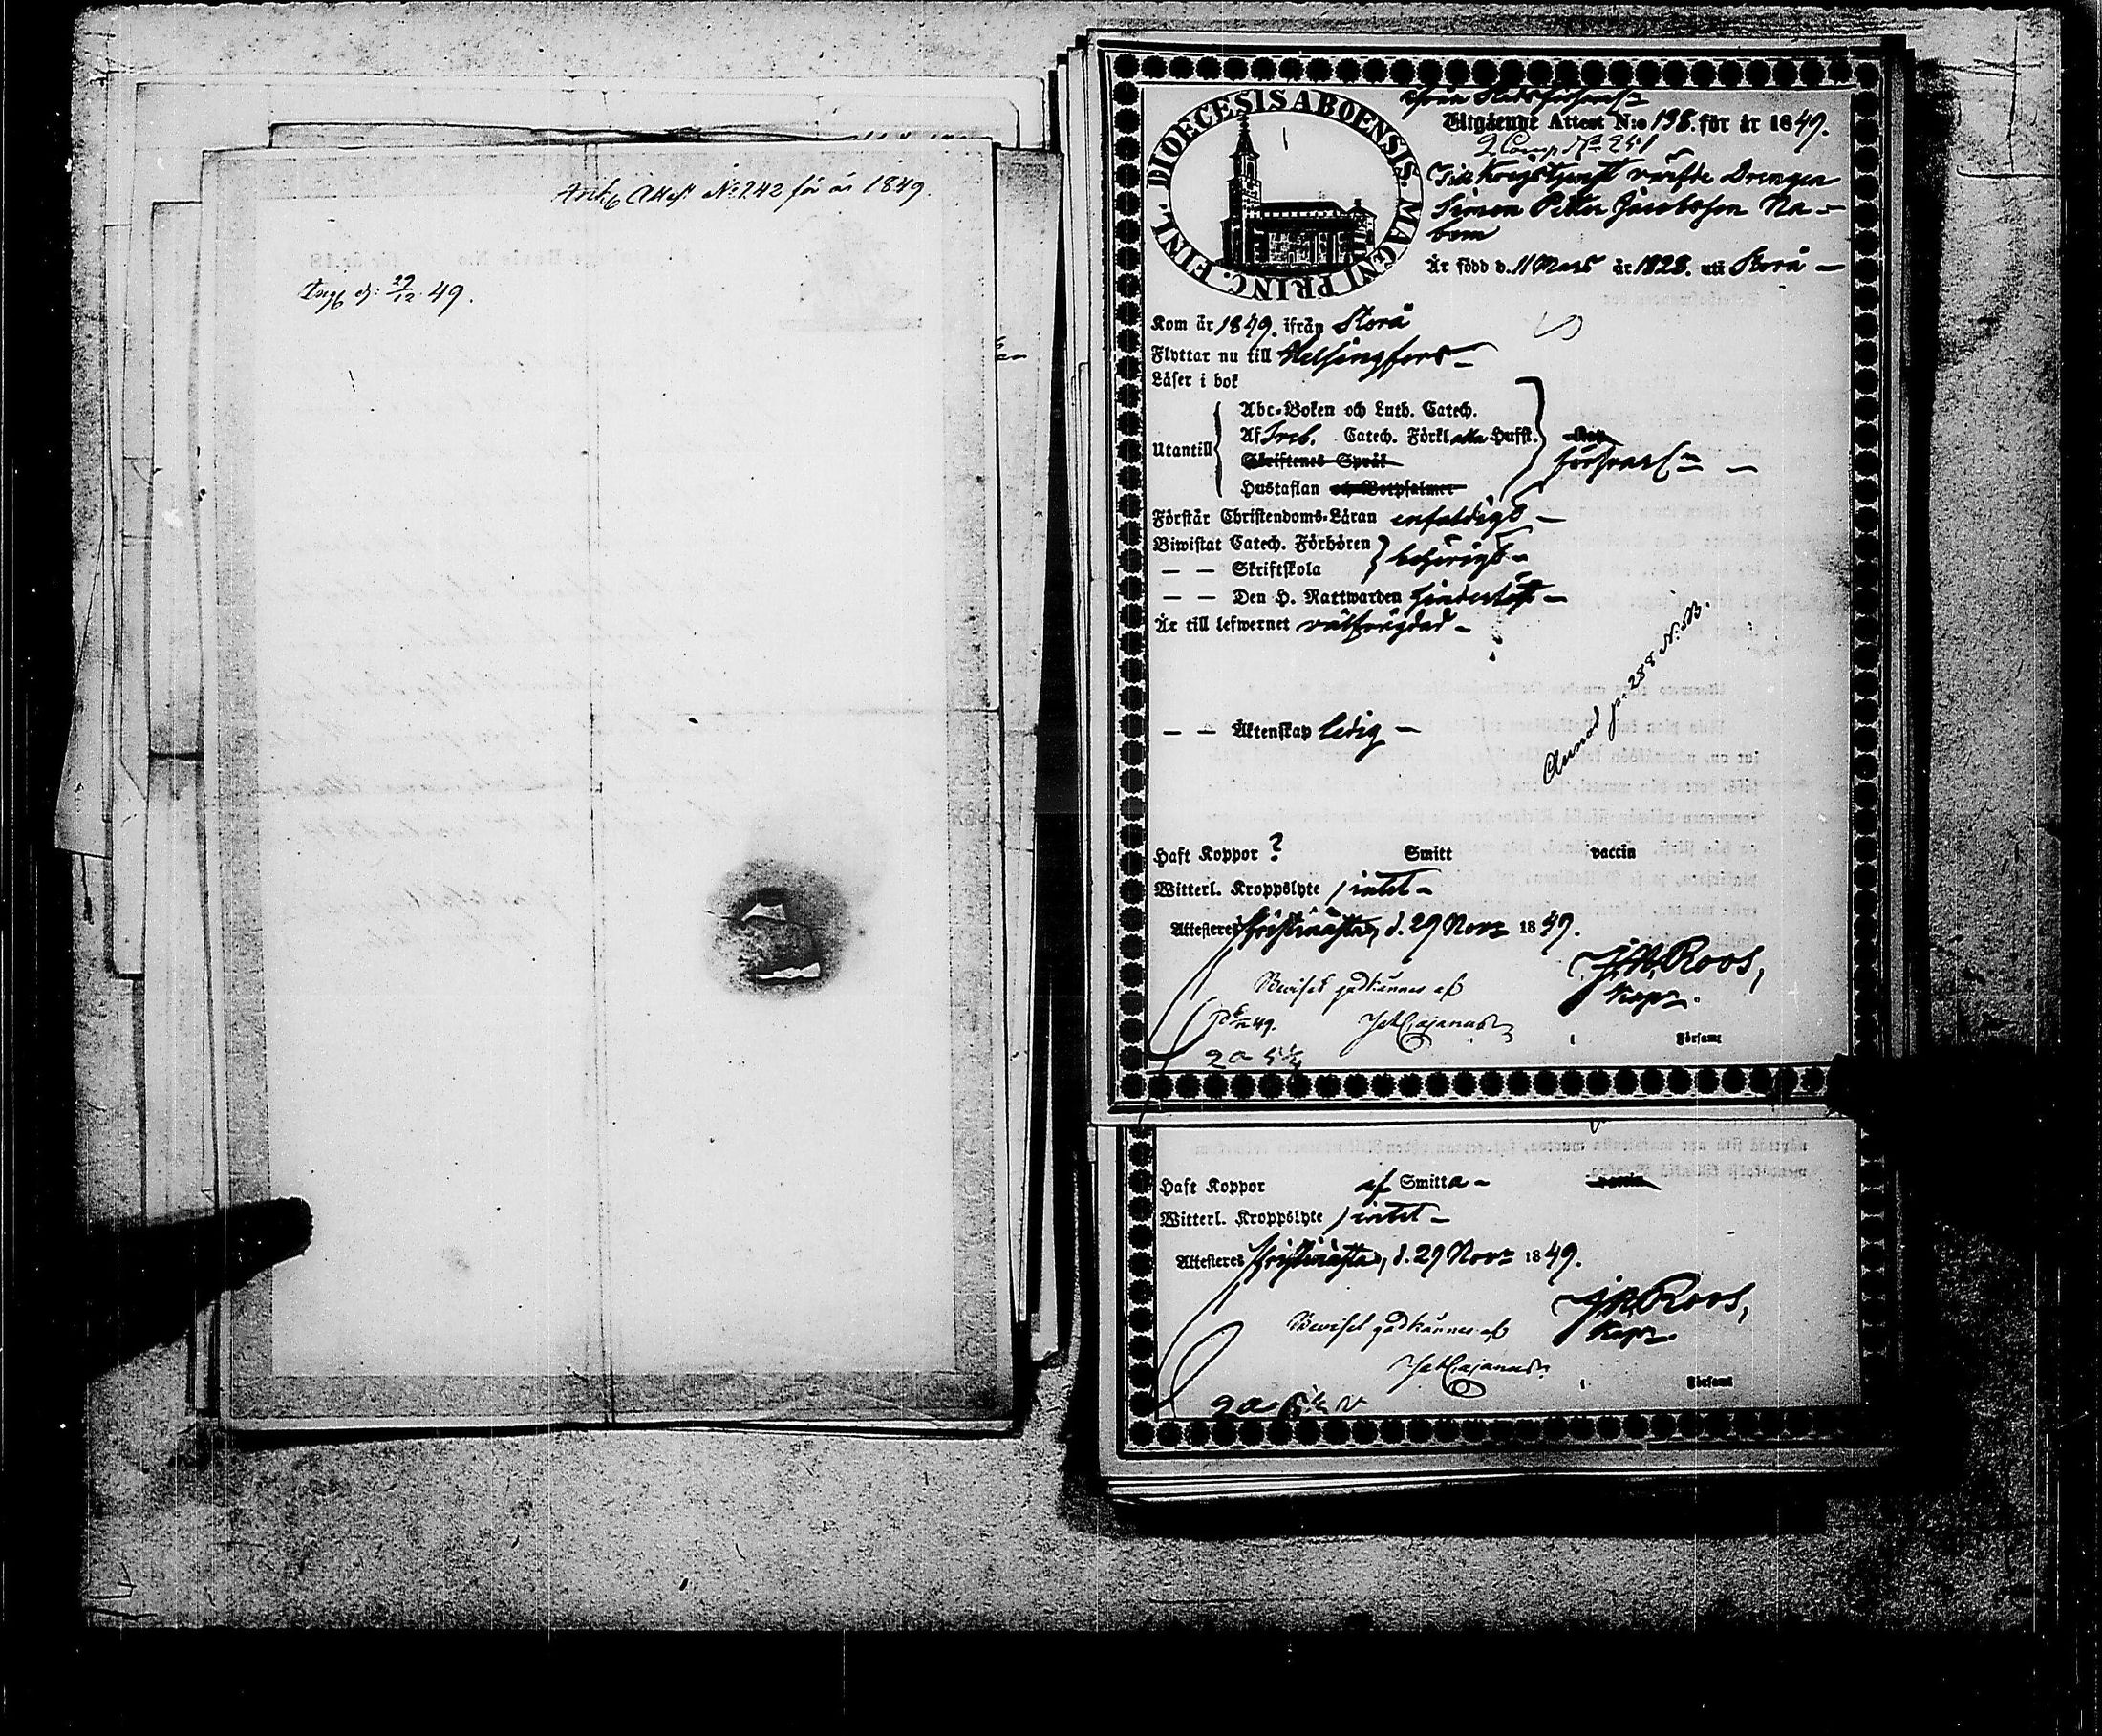 Ank. Attest No 242 för år 1849.
49.
DIOECESIS ABOENSIS. MAGNI PRINC. FINL.
ifrån Stadsförsaml.
Utgående Attest N:o 198. för år 1849.
2 Comp. No 251
Till Krigstjenst värfde Drengen
Simon Petter Jacobsson Na-
bom
Är född d. 11 Mars år 1828. uti Storå —
Kom år 1849. ifrån Storå
Flyttar nu till Helsingfors —
Läser i bok
Utantill
Abc-Boken och Luth. Catech.
Af Treb. Catech. Förkl alla Hufst.
Skriftenes Språk
Hustaflan och Botpsalmer
försvarl. —
Förstår Christendoms-Läran enfaldigt —
Biwistat Catech. Förhören
— — Skriftskola
behörigt —
— — Den H. Nattwarden
Är till lefwernet välfrägdad —
— — Äktenskap ledig —
p. 288 N.B.
Haft Koppor ? Smitt vaccin
Witterl. Kroppslyte intet —
Attesteres Christinæstad, d. 29 Novr 1849.
J.R. Roos,
Kapn.
Beviset godkännes af
49.
Jak Cajanus
i Församl
Haft Koppor af Smitta — vaccin
Witterl. Kroppslyte intet —
Attesteres Christinæstad, d. 29 Novr 1849.
J.R. Roos,
Kapn.
Beviset godkännes af
Jak Cajanus
i Församl